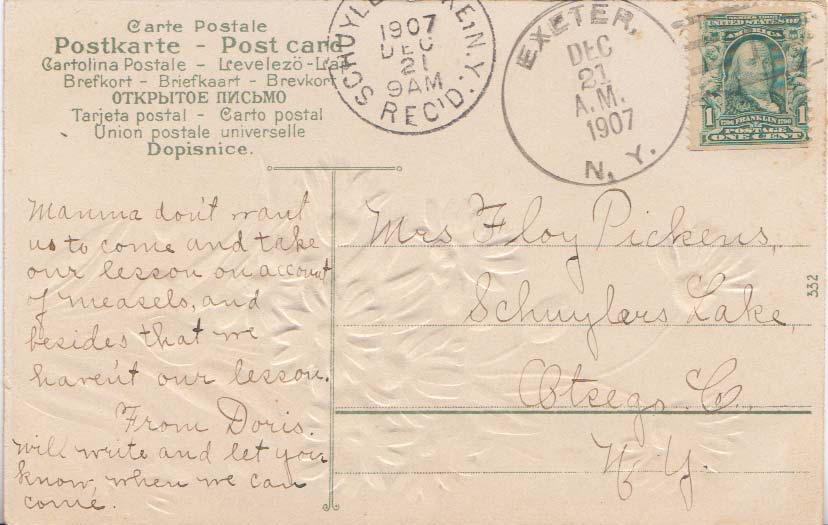 Carte Postale
Postkarte - Post card
Cartolina Postale - Levelezö-Lap
Brefkort - Briefkaart - Brevkort
ОТКРЫТОЕ ПИСЬМО
Tarjeta postal - Carto postal
Union postale universelle
Dopisnice.
SCHUYLER LAKE, N.Y.
1907
DEC
21
9AM
REC'D.
EXETER,
DEC
21
A.M.
1907
N. Y.
SERIES 1902
UNITED STATES OF
AMERICA
1 1
1706 FRANKLIN 1790
POSTAGE
ONE CENT
Mamma don't want
us to come and take
our lesson on account
of measels, and
besides that we
haven't our lesson.
From Doris.
will write and let you
know, when we can
come.
Mrs Floy Pickens,
Schuylers Lake,
Otsego Co.,
N. Y.
332